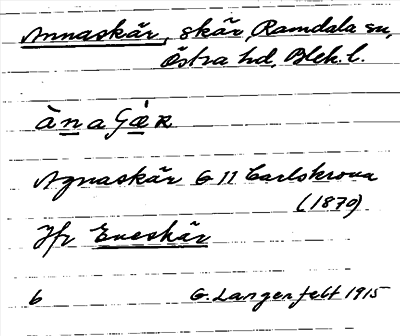 Annaskär, skär, Ramdala sn,
Östra hd, Blek. l.
ànaʃæ̀r
Agnaskär G 11 Carlskrona
(1870)
Jfr Eneskär
6 G. Langenfelt 1915